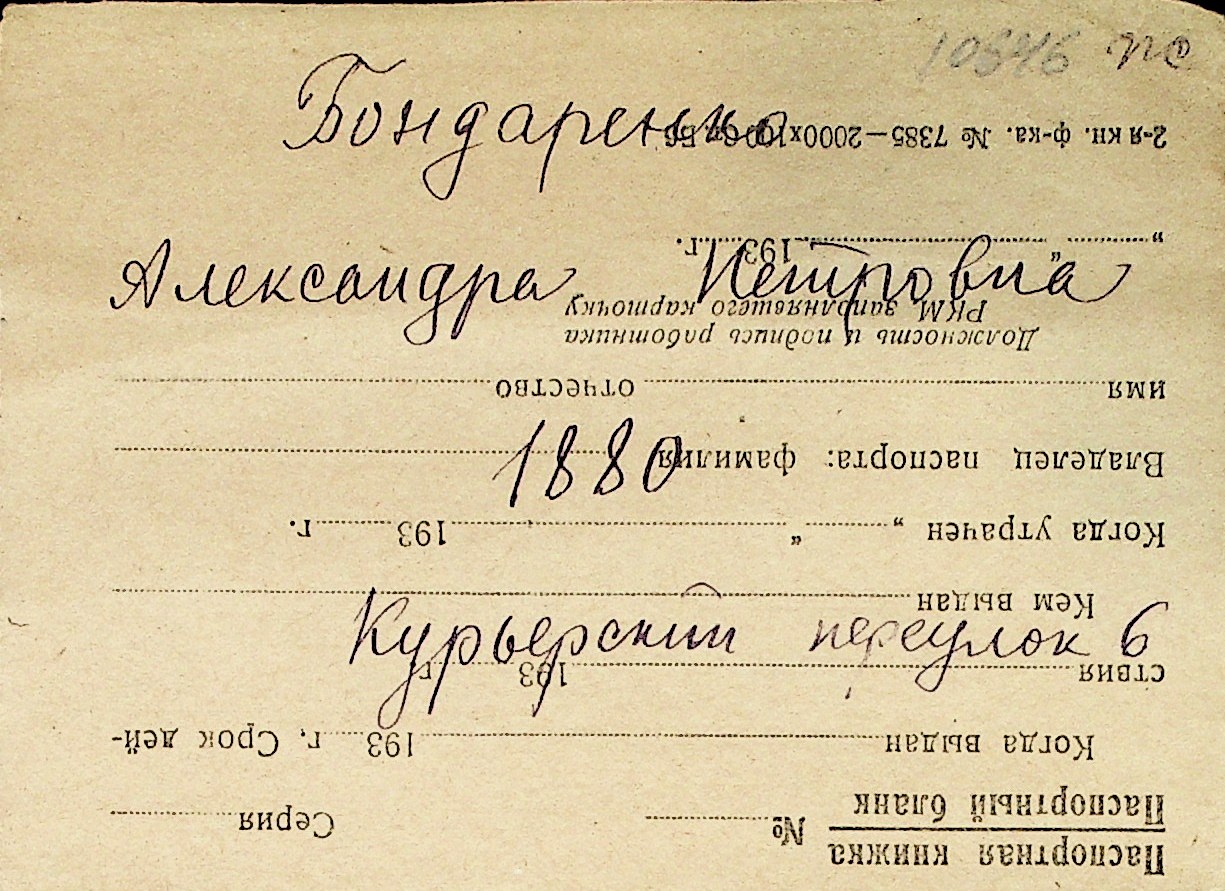 10546
Бондаренко
Александра Петровна
1880
Курьерский переулок 6
Паспортная книжка
Паспортный бланк
№ Серия
Когда выдан 193 г. Срок дей-
ствия 193 г.
Кем выдан
Когда утрачен „ “ 193 г.
Владелец паспорта: фамилия
имя отчество
Должность и подпись работника
РКМ заполнявшего карточку
„ “ 193 г.
2-я кн. ф-ка. № 7385—2000х100